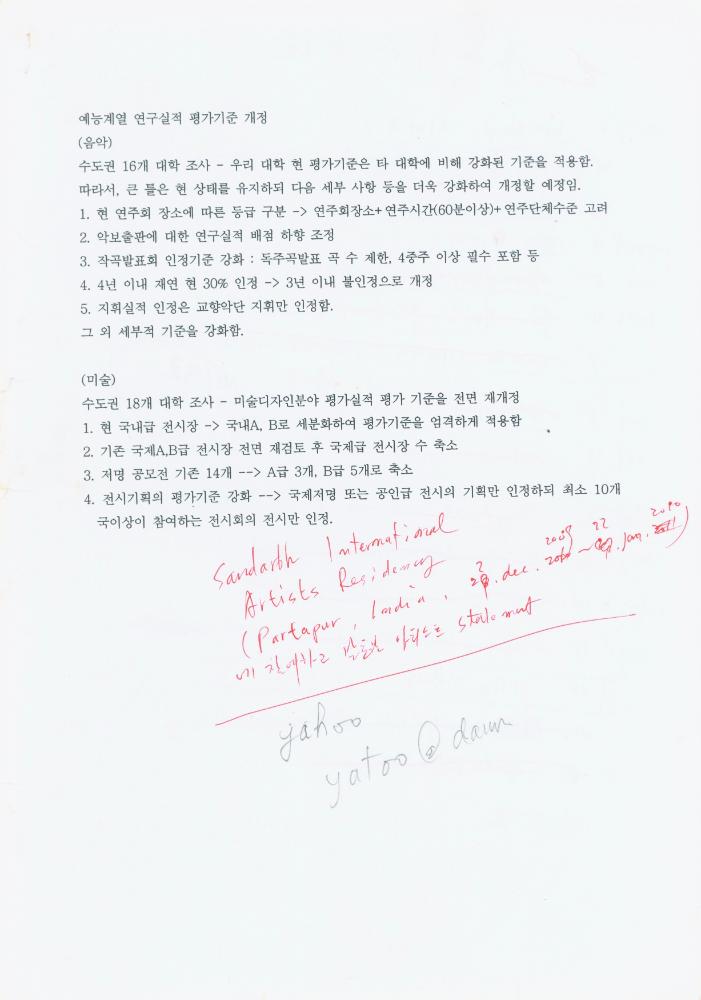 예능계열 연구실적 평가기준 개정
(음악)
수도권 16개 대학 조사 - 우리 대학 현 평가기준은 타 대학에 비해 강화된 기준을 적용함.
따라서, 큰 틀은 현 상태를 유지하되 다음 세부 사항 등을 더욱 강화하여 개정할 예정임.
1. 현 연주회 장소에 따른 등급 구분 -> 연주회장소+연주시간(60분이상)+연주단체수준 고려
2. 악보출판에 대한 연구실적 배점 하향 조정
3. 작곡발표회 인정기준 강화 : 독주곡발표 곡 수 제한, 4중주 이상 필수 포함 등
4. 4년 이내 재연 현 30% 인정 -> 3년 이내 불인정으로 개정
5. 지휘실적 인정은 교향악단 지휘만 인정함.
그 외 세부적 기준을 강화함.
(미술)
수도권 18개 대학 조사 - 미술디자인분야 평가실적 평가 기준을 전면 재개정
1. 현 국내급 전시장 -> 국내A, B로 세분화하여 평가기준을 엄격하게 적용함
2. 기존 국제A,B급 전시장 전면 재검토 후 국제급 전시장 수 축소
3. 저명 공모전 기존 14개 --> A급 3개, B급 5개로 축소
4. 전시기획의 평가기준 강화 --> 국제저명 또는 공인급 전시의 기획만 인정하되 최소 10개
국이상이 참여하는 전시회의 전시만 인정.
Sandarbh International
Artists Residency
(Partapur, India, dec. 2009 ~ 22. Jan. 2010)
에 참여하고 아티스트 statement
yahoo
yatoo@daum